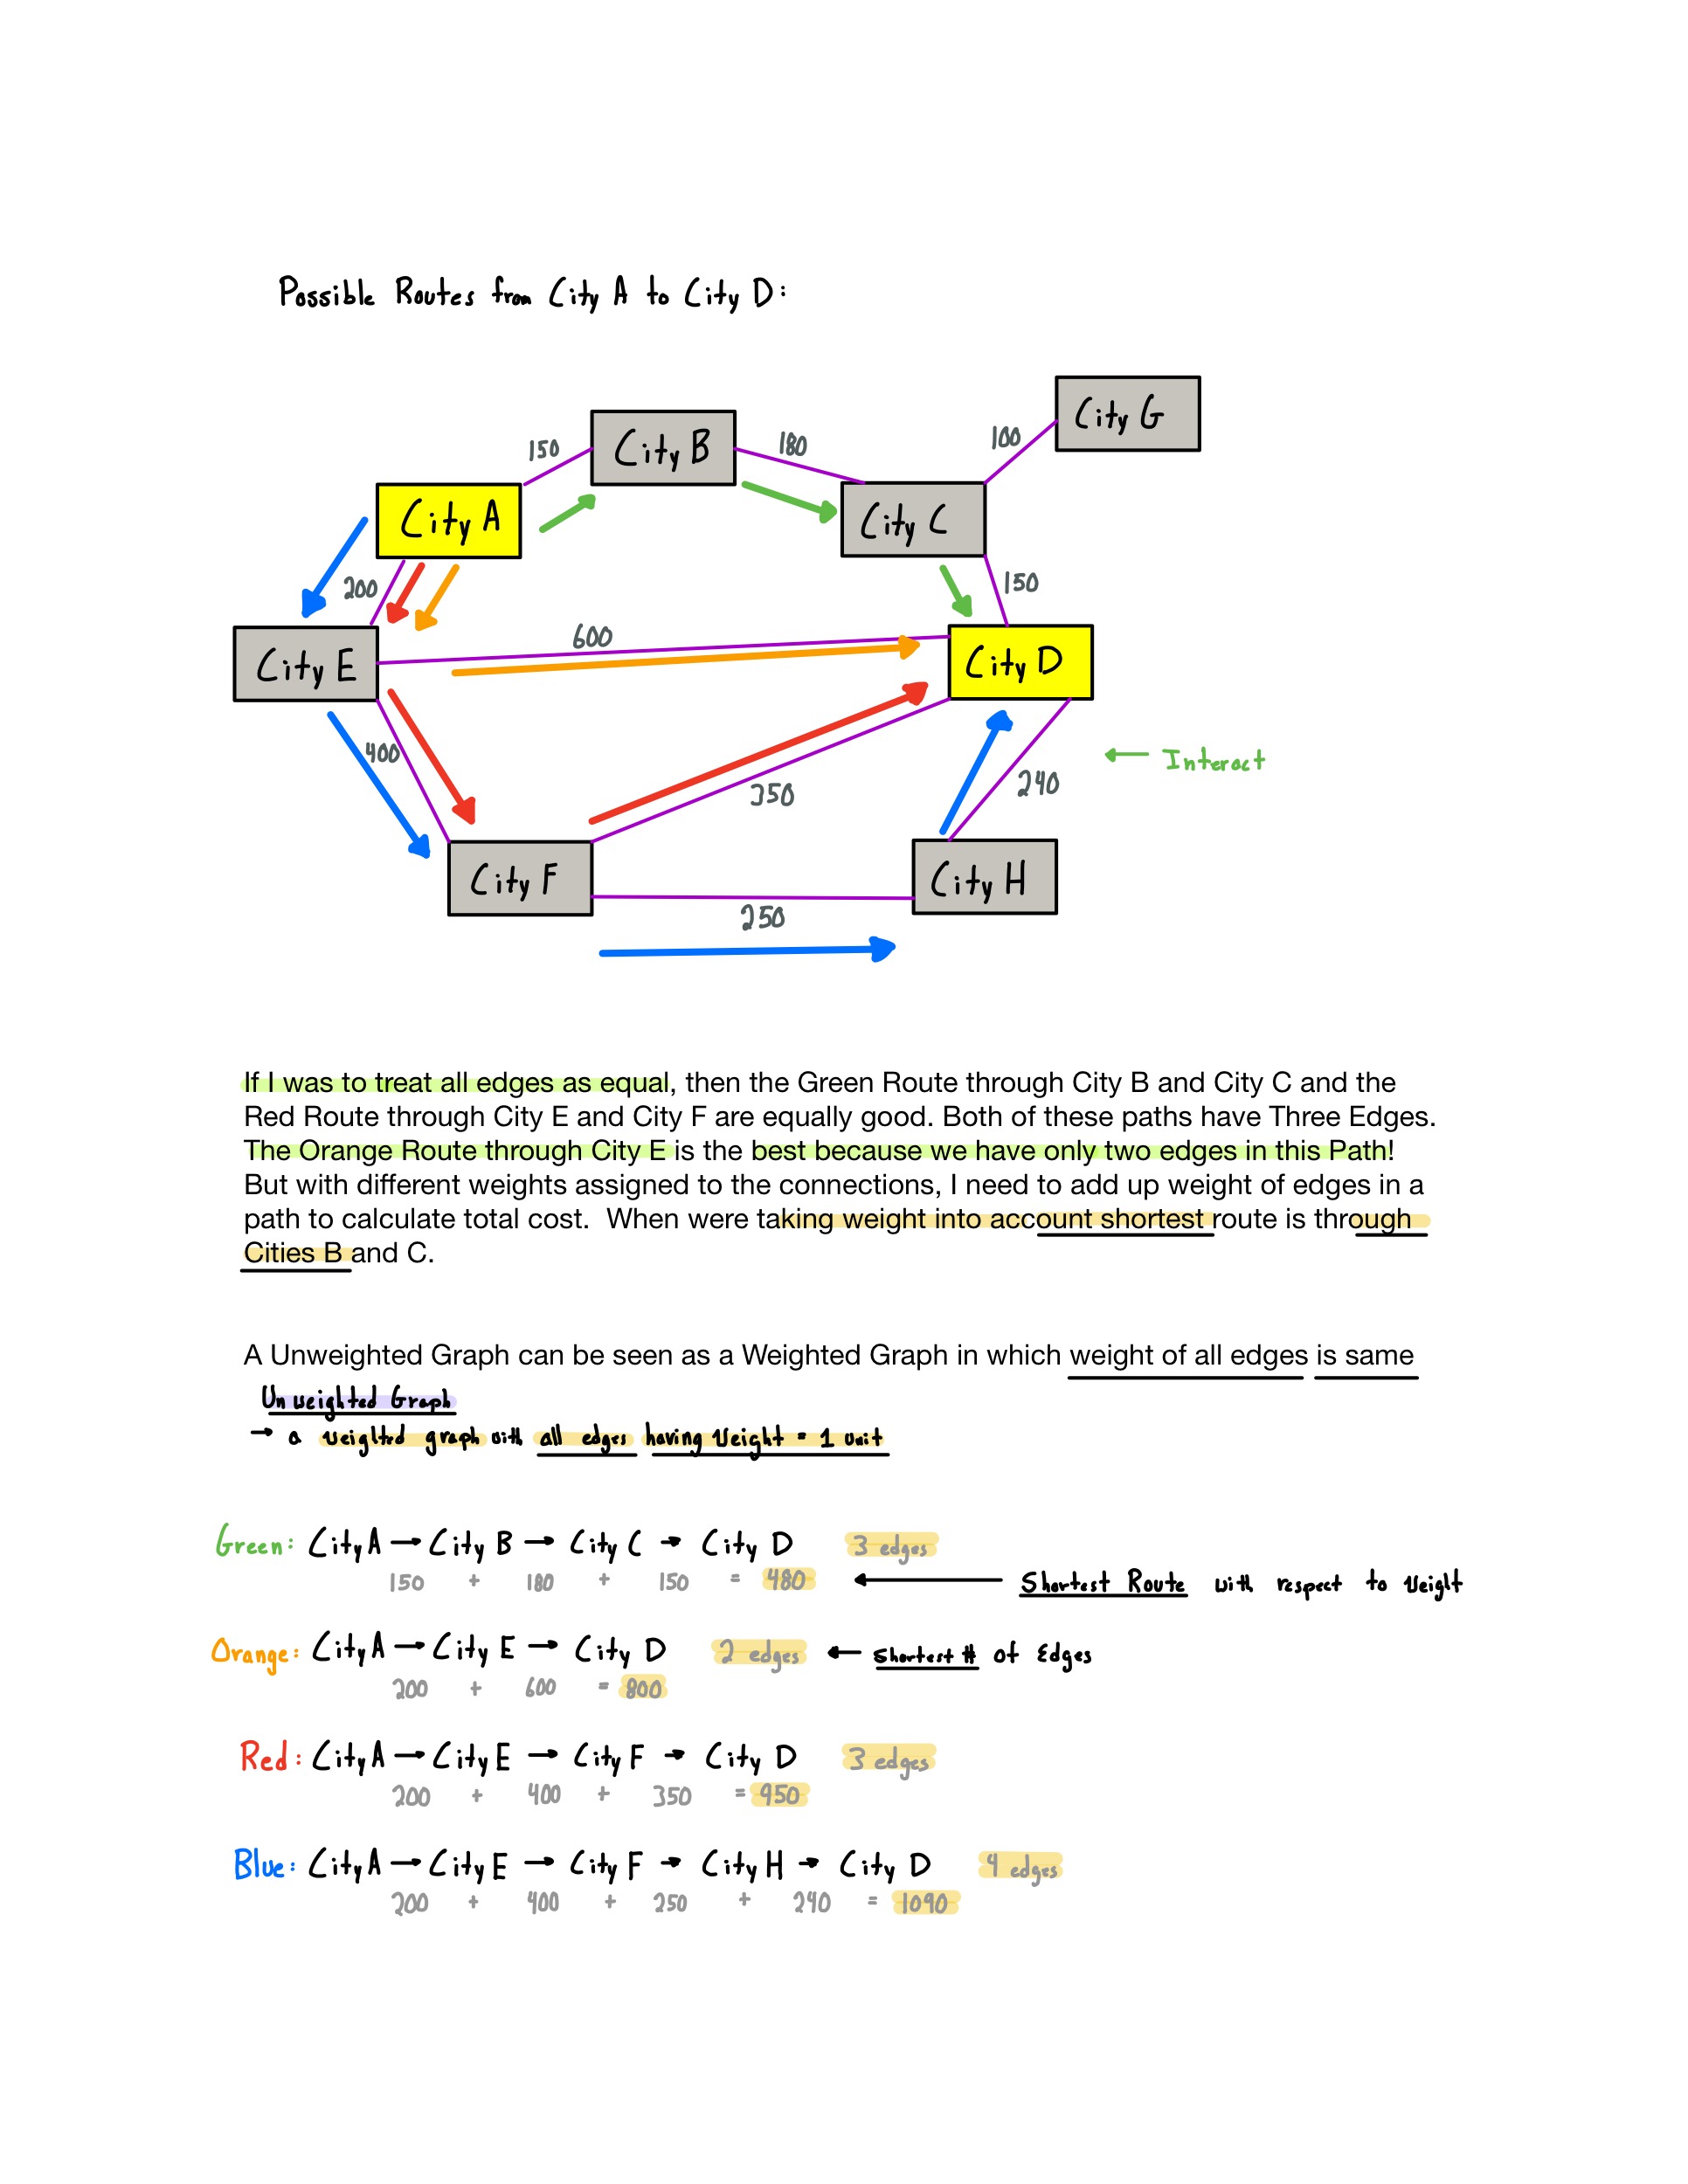 Possible Routes from City A to City D:
City G
100
City B
150
180
City A
City C
200
150
600
City E
City D
400
Interact
350
240
City F
City H
250
If I was to treat all edges as equal, then the Green Route through City B and City C and the
Red Route through City E and City F are equally good. Both of these paths have Three Edges.
The Orange Route through City E is the best because we have only two edges in this Path!
But with different weights assigned to the connections, I need to add up weight of edges in a
path to calculate total cost.  When were taking weight into account shortest route is through
Cities B and C.
A Unweighted Graph can be seen as a Weighted Graph in which weight of all edges is same
Unweighted Graph
→ a weighted graph with all edges having Weight = 1 unit
Green: City A → City B → City C → City D 3 edges
150 + 180 + 150 = 480 ← Shortest Route with respect to Weight
Orange: City A → City E → City D 2 edges ← Shortest # of Edges
200 + 600 = 800
Red: City A → City E → City F → City D 3 edges
200 + 400 + 350 = 950
Blue: City A → City E → City F → City H → City D 4 edges
200 + 400 + 250 + 240 = 1090